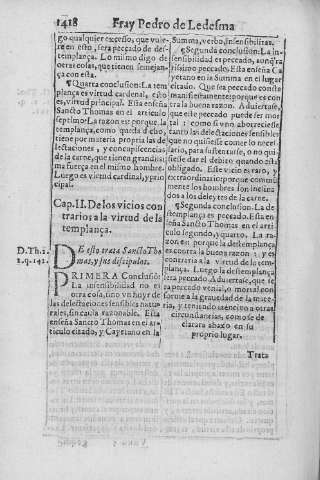 1418 Fray Pedro de Ledesma
go qualquier excesso, que vuie-
re en esto, sera peccado de des-
templança. Lo mismo digo de
otras cosas, que tienen semejan-
ça con esta.
¶ Quarta conclusion: La tem
plança es virtud cardenal, esto
es, virtud principal. Esta enseña
Sancto Thomas en el articulo
septimo. La razon es: porque la
templança, como queda dicho,
tiene por materia propria las de
lectaciones, y concupiscencias
de la carne, que tienen grandissi
ma fuerça en el mismo hombre.
Luego es virtud cardenal, y prin
cipal.
Cap. II. De los vicios con
trarios a la virtud de la
templança.
D. Th. 2.
2. q. 142.
DE esto trata Sancto Tho
mas, y sus discipulos.
PRIMERA Conclusiõ:
La insensibilidad no es
otra cosa, sino vn huyr de
las delectaciones sensibles natu
rales, sin causa razonable. Esta
enseña Sancto Thomas en el ar-
ticulo citado, y Cayetano en la
Summa, verbo, insensibilitas.
¶ Segunda conclusion: La in-
sensibilidad es peccado, aunq̃ ra
rissimo peccado. Esta enseña Ca
yetano en la Summa en el lugar
citado. Que sea peccado consta
manifiestamente: porque es con
tra la buena razon. Aduiertase,
que este peccado puede ser mor
tal: como si vno aborreciesse
tanto las delectaciones sensibles
que no quisiesse comer lo neces-
sario, para sustentarse, o no qui-
siesse dar el debito quando està
obligado. Este vicio es raro, y
extraordinario: porque commun
mente los hombres son inclina
dos a los deleytes de la carne.
¶ Segunda conclusion: La de
stemplança es peccado. Esta en
seña Sancto Thomas en el arti
culo segundo, y quarto. La ra-
zon es: porque la destemplança
es contra la buena razon: y es
contraria a la virtud de la tem-
plança. Luego la destemplança
sera peccado. Aduiertase, que se
ra peccado venial, o mortal, con
forme a la grauedad de la mate-
ria, y teniendo atencion a otras
circunstancias, como se de
clarara abaxo en su
proprio lugar.
Trata